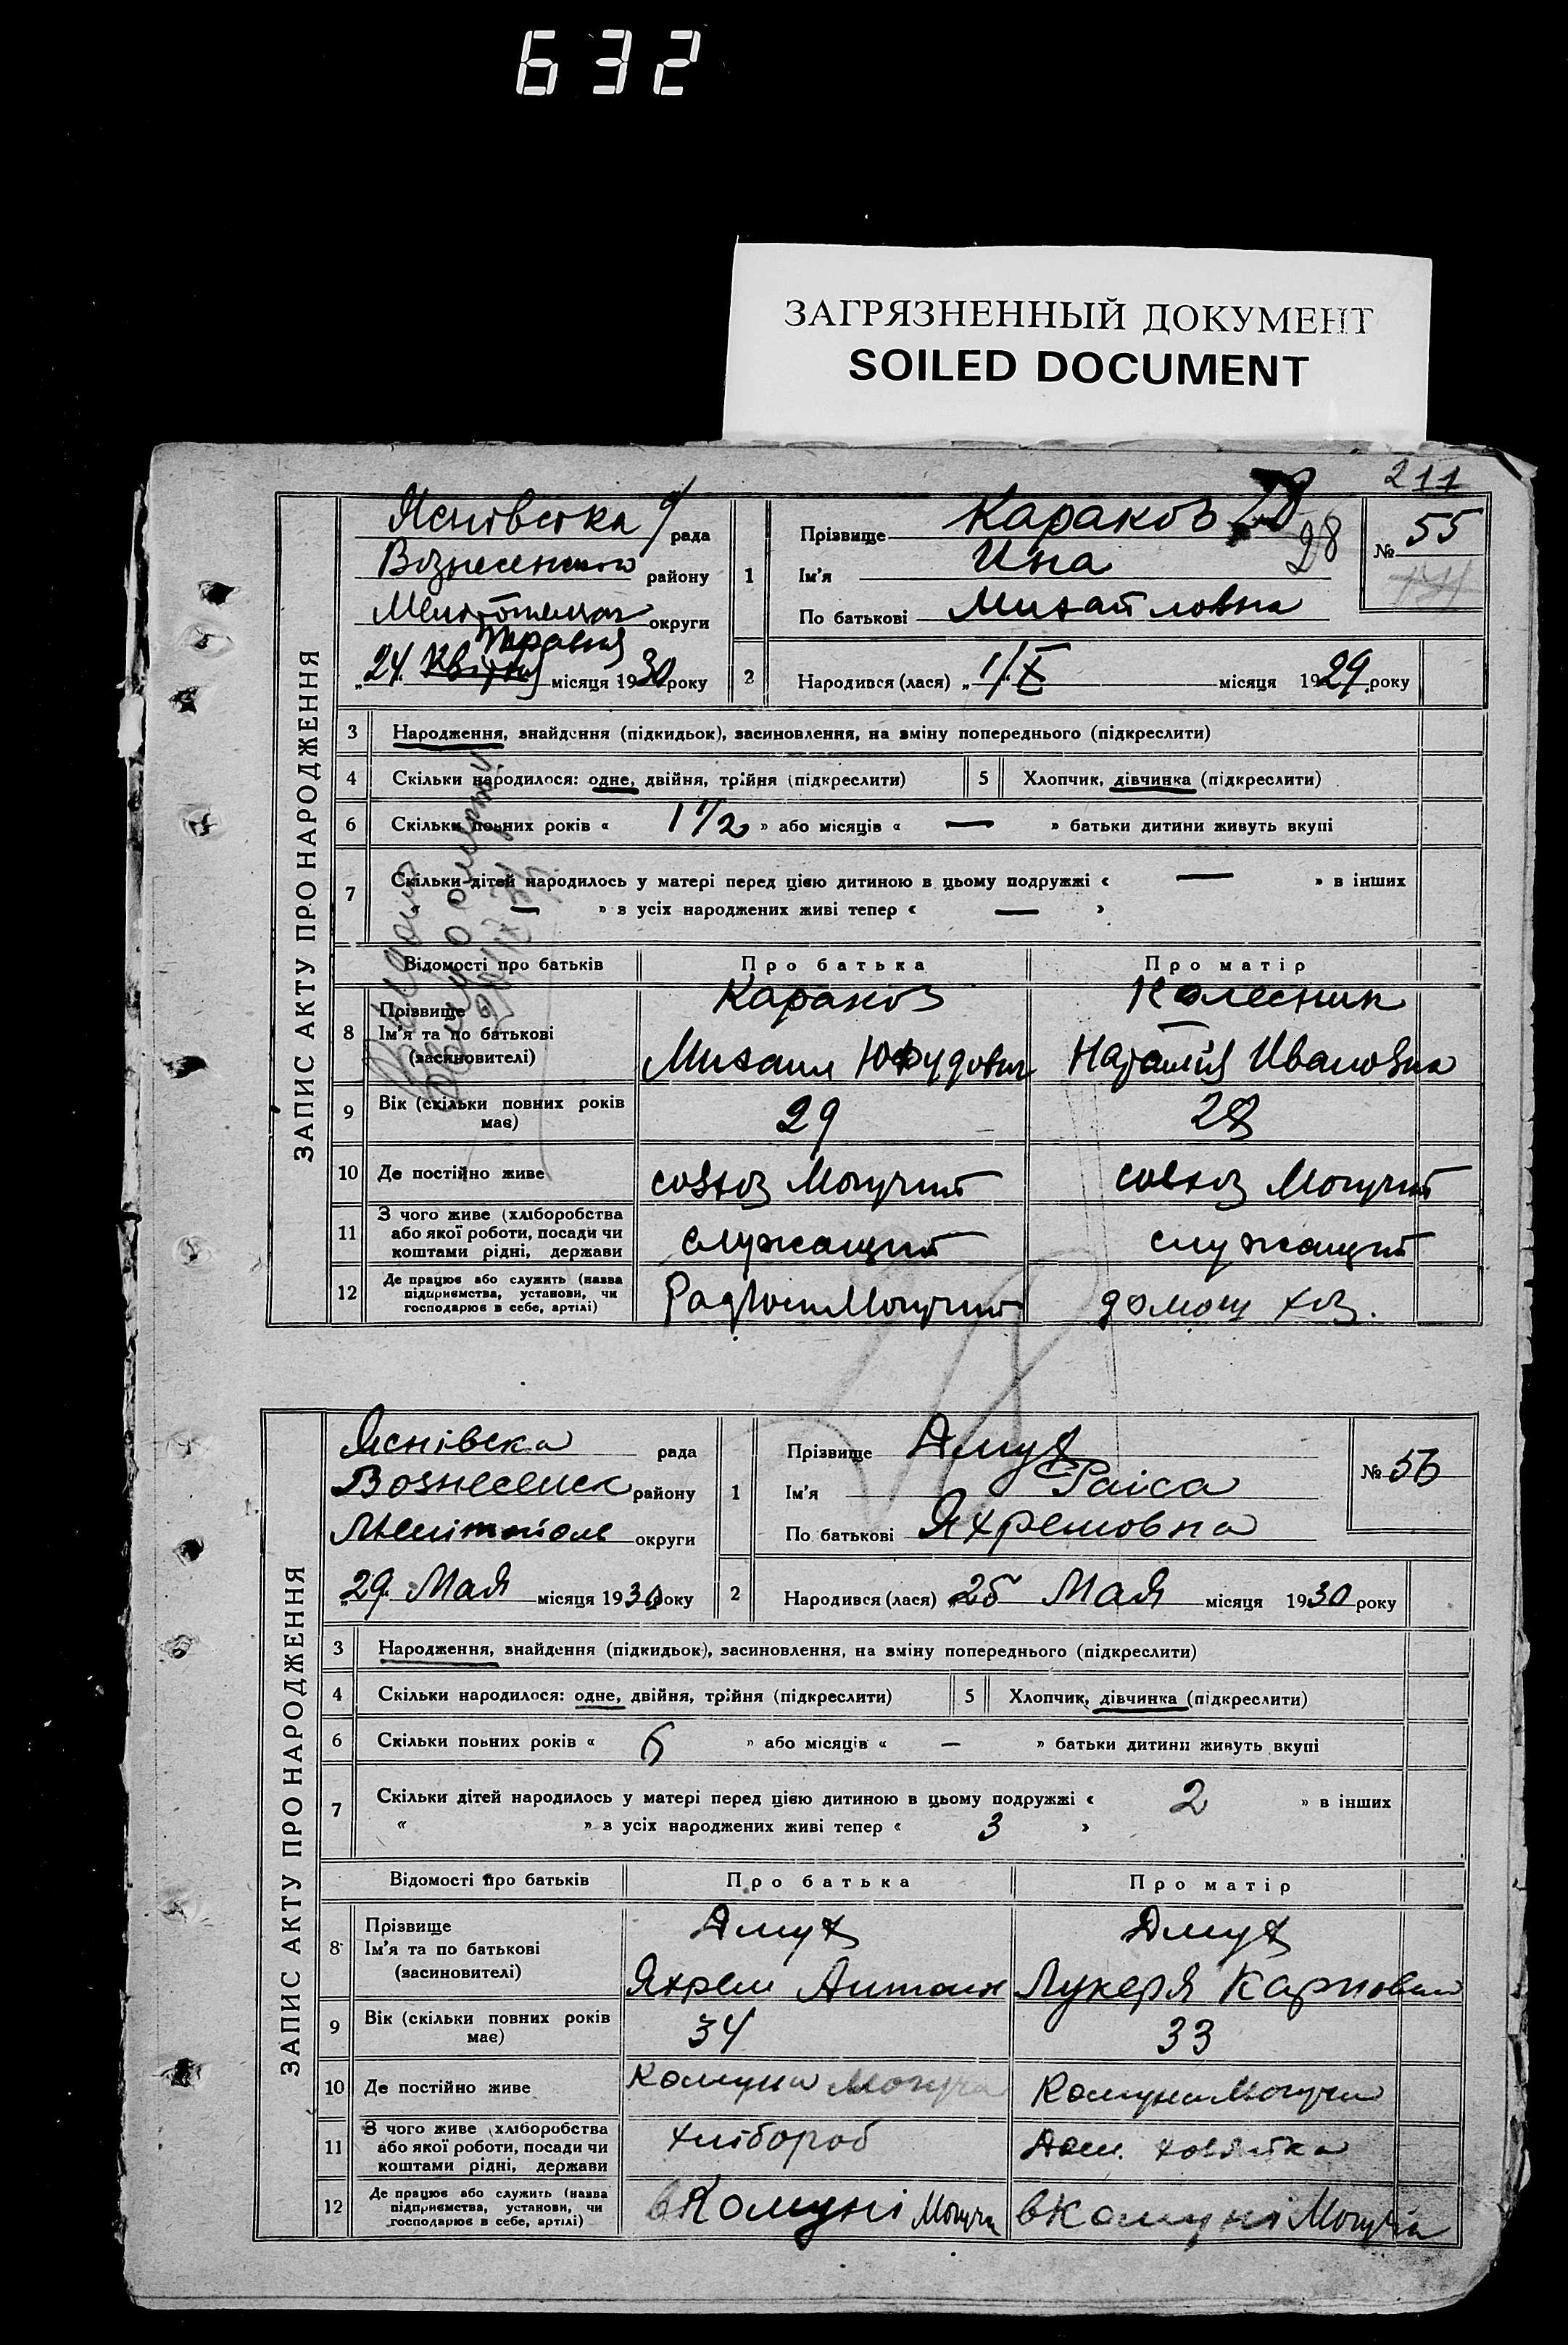 632
ЗАГРЯЗНЕННЫЙ ДОКУМЕНТ
SOILED DOCUMENT
211
ЗАПИС АКТУ ПРО НАРОДЖЕННЯ
Яснівська рада
району
округи
Травня
24 Квітня місяця 1930 року
1
Прізвище Караков
28
Ім'я Ина
По батькові Михайловна
№ 55
2 Народився (лася) „1/X місяця 1929 року
3 Народження, знайдення (підкидьок), засиновлення, на зміну попереднього (підкреслити)
4 Скільки народилося: одне, двійня, трійня (підкреслити) 5 Хлопчик, дівчинка (підкреслити)
6 Скільки повних років « 1 1/2 » або місяців « — » батьки дитини живуть вкупі
7 Скільки дітей народилось у матері перед цією дитиною в цьому подружжі « — » в інших
« — » в усіх народжених живі тепер « — »
Відомості про батьків Про батька Про матір
8 Прізвище Караков Колесник
Ім'я та по батькові
(засиновителі) Михаил Наталія Ивановна
9 Вік (скільки повних років має) 29 28
10 Де постійно живе совхоз Могучий совхоз Могучий
11 З чого живе (хліборобства або якої роботи, посади чи коштами рідні, держави служащий служащий
12 Де працює або служить (назва підприємства, установи, чи господарює в себе, артілі) Могучий домаш хоз.
ЗАПИС АКТУ ПРО НАРОДЖЕННЯ
Яснівска рада
Вознесенск району
Мелітополь округи
„29 Мая місяця 1930 року
1
Прізвище
Ім'я Раіса
По батькові Яхремовна
№ 56
2 Народився (лася) 25 Мая місяця 1930 року
3 Народження, знайдення (підкидьок), засиновлення, на зміну попереднього (підкреслити)
4 Скільки народилося: одне, двійня, трійня (підкреслити) 5 Хлопчик, дівчинка (підкреслити)
6 Скільки повних років « 6 » або місяців « — » батьки дитини живуть вкупі
7 Скільки дітей народилось у матері перед цією дитиною в цьому подружжі « 2 » в інших
« » в усіх народжених живі тепер « 3 »
Відомості про батьків Про батька Про матір
8 Прізвище
Ім'я та по батькові
(засиновителі) Яхрем Антон Лукеря Карповна
9 Вік (скільки повних років має) 34 33
10 Де постійно живе Комуна Могуча Комуна Могуча
11 З чого живе (хліборобства або якої роботи, посади чи коштами рідні, держави хлібороб Дом. хозяйка
12 Де працює або служить (назва підприємства, установи, чи господарює в себе, артілі) в Комуні Могуча в Комуні Могуча